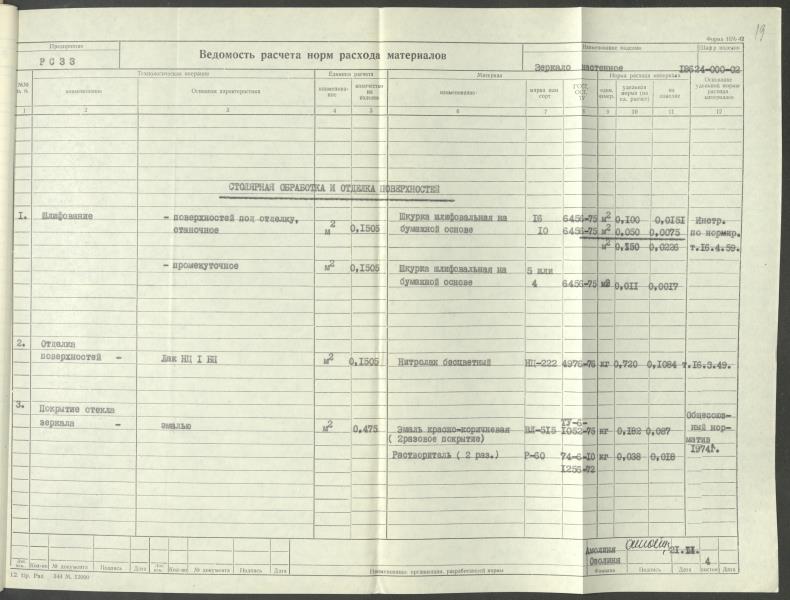 19
Форма 1076-42
Предприятие
РСЗЗ
Ведомость расчета норм расхода материалов
Наименование изделия
Шифр изделия
Зеркало настенное
18624-000-02
№№ п. п.
Технологическая операция
Единица расчета
Материал
Норма расхода материала
Основание удельной нормы расхода материалов
наименование
Основная характеристика
наименование
количество на изделие
наименование
марка или сорт
ГОСТ, ОСТ, ТУ
един. измер.
удельная норма (на ед. расчет)
на изделие
1 2 3 4 5 6 7 8 9 10 11 12
СТОЛЯРНАЯ ОБРАБОТКА И ОТДЕЛКА ПОВЕРХНОСТЕЙ
1. Шлифование - поверхностей под отделку, Шкурка шлифовальная на 16 6456-75 м2 0,100 0,0151 Инстр.
станочное м2 0,1505 бумажной основе 10 6456-75 м2 0,050 0,0075 по нормир.
м2 0,150 0,0226 т.16.4.59.
- промежуточное м2 0,1505 Шкурка шлифовальная на 5 или
бумажной основе 4 6456-75 м2 0,011 0,0017
2. Отделка
поверхностей - Лак НЦ 1 БЦ м2 0,1505 Нитролак бесцветный НЦ-222 4976-76 кг 0,720 0,1084 т.16.3.49.
3. Покрытие стекла
зеркала - эмалью м2 0,475 Эмаль красно-коричневая ВЛ-515 ТУ-6-1052-75 кг 0,182 0,087 Общесоюзный норматив 1974г.
( 2разовое покрытие)
Растворитель ( 2 раз.) Р-60 74-6-10 кг 0,038 0,018
1256-72
Амолиня 21.III.
Озолиня 4
Фамилия Подпись Дата листов Дата
Кол-во № документа Подпись Дата Кол-во № документа Подпись Дата
Наименование организации, разработавшей нормы